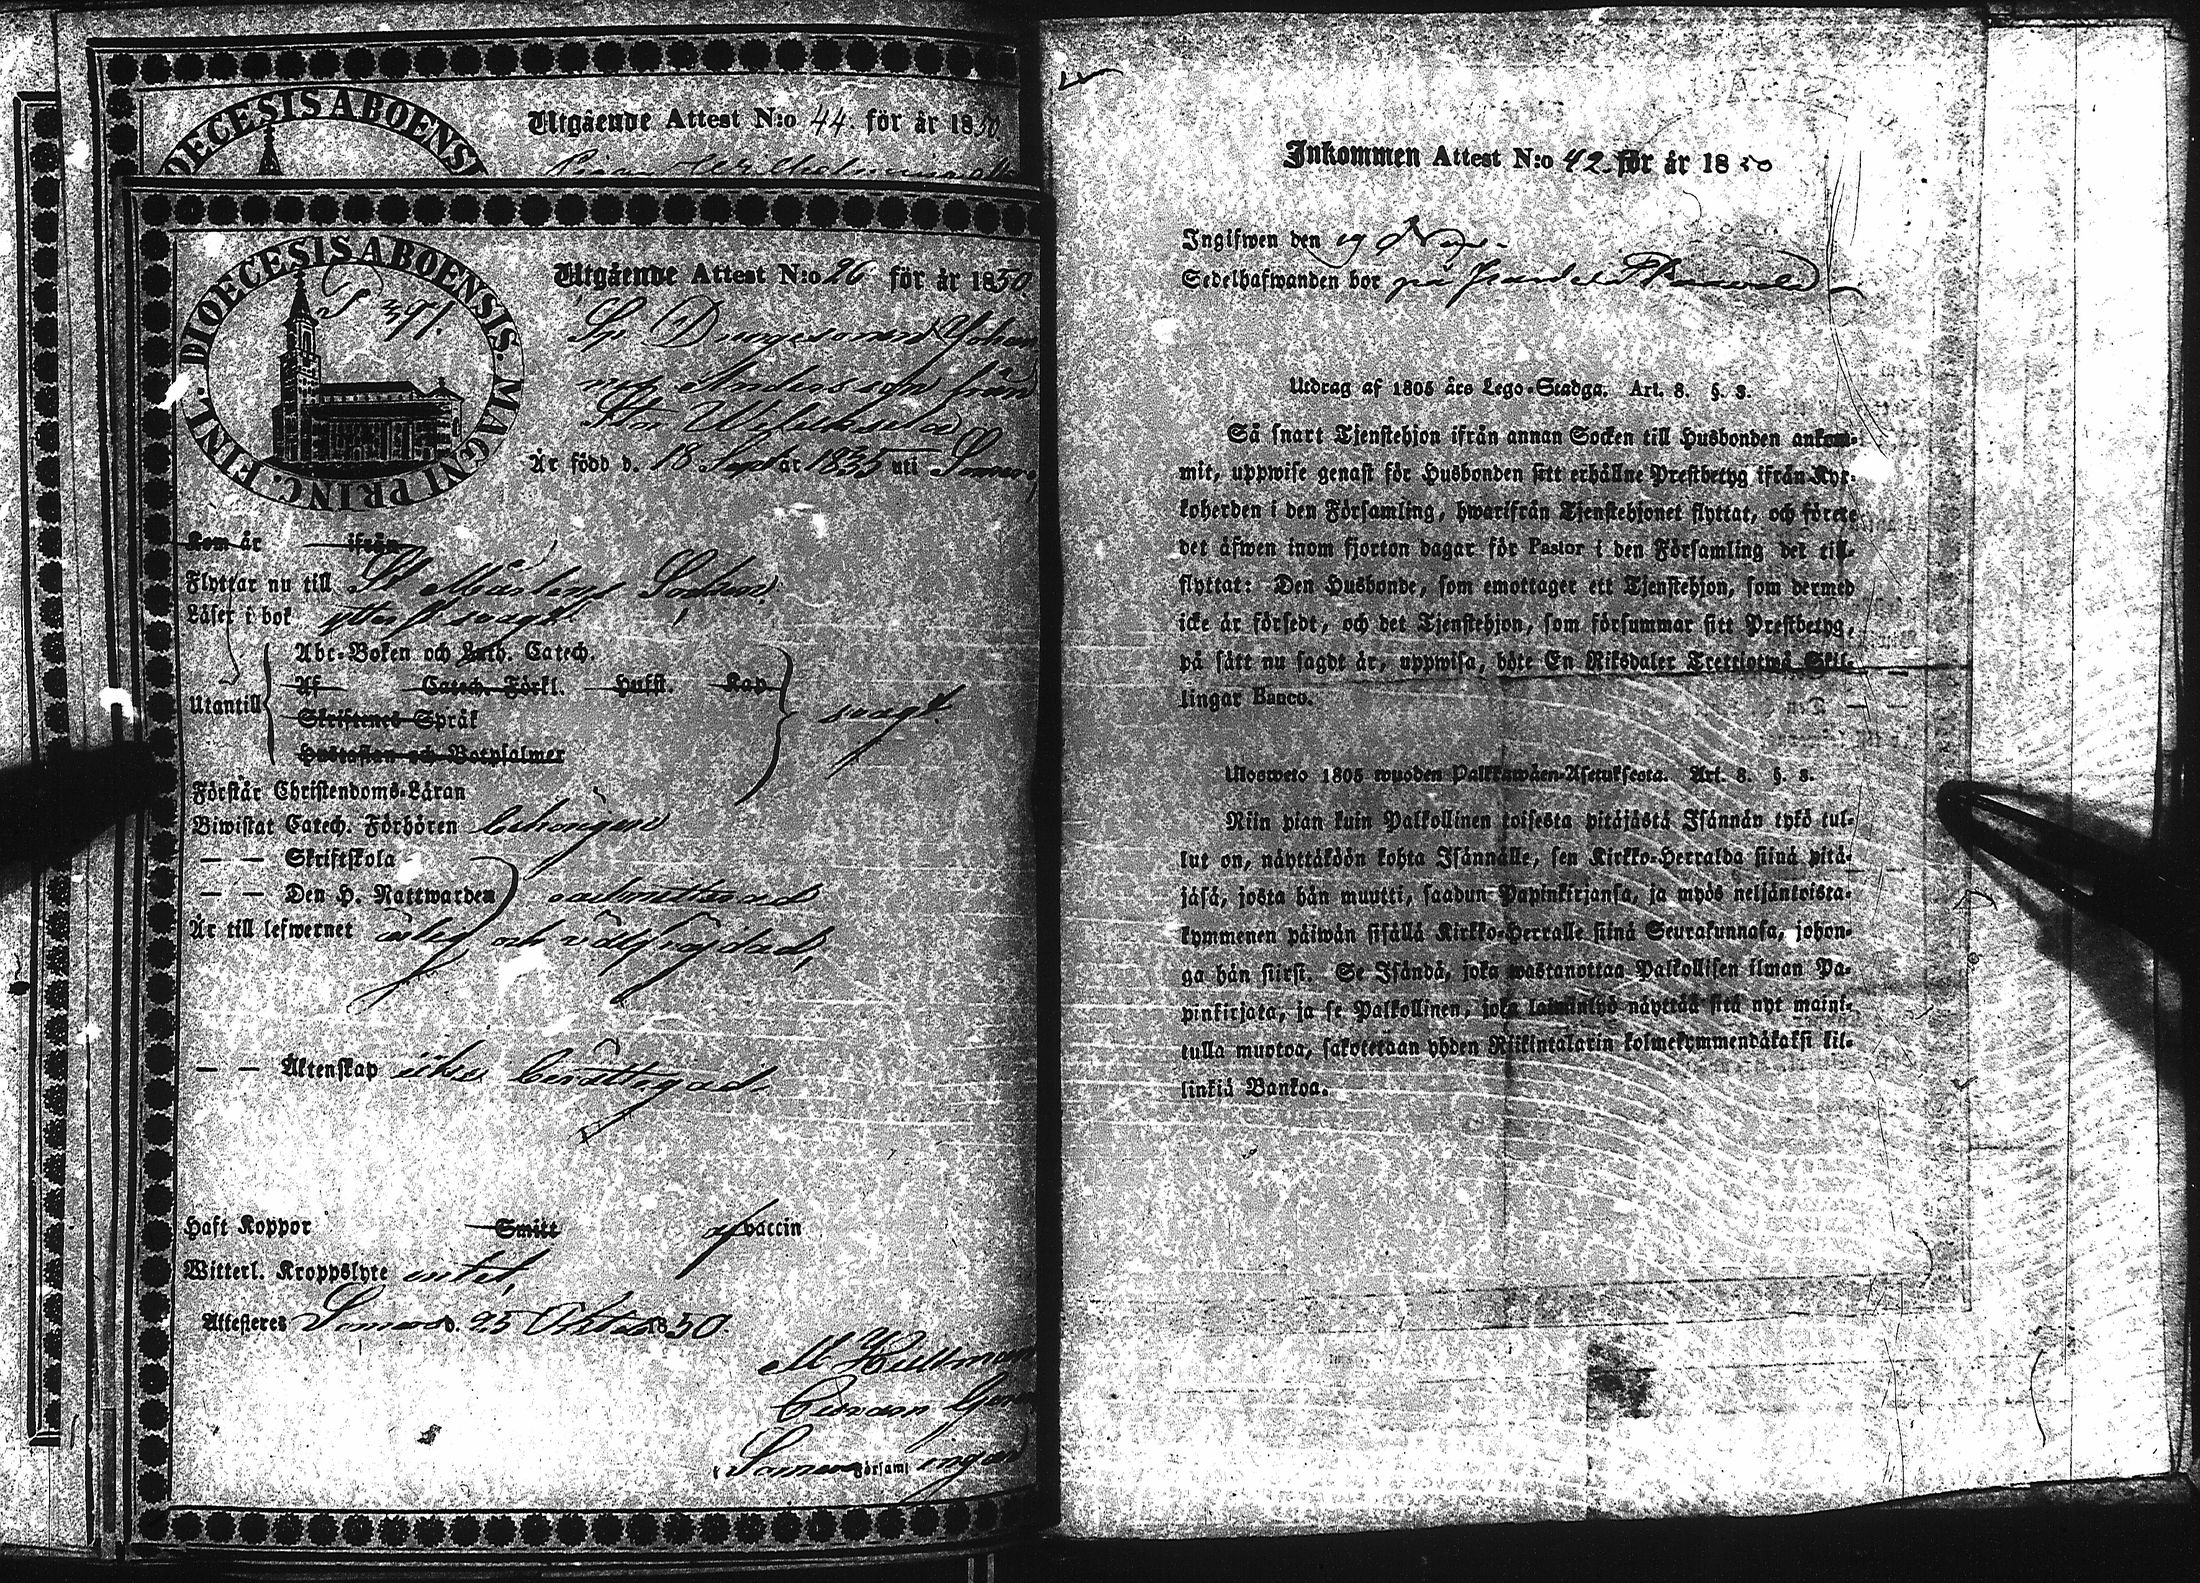 DIOECESIS ABOENSI
Utgående Attest N:o 44. för år 1850
Wilhelmina
DIOECESIS ABOENSIS. MAGNI PRINC. FINL.
P 391.
Utgående Attest N:o 26 för år 1850.
Johan
Andersson från
Är född d. 18 Sept år 1835 uti Somero
Kom år ifrån
Flyttar nu till St Mårtens Socken.
Läser i bok ytterst svagt.
Abc-Boken och Luth. Catech.
Af Catech. Förkl. Hufst. Kap
Utantill
Skriftenes Språk
svagt.
Hustaflan och Botpsalmer
Förstår Christendoms-Läran
Biwistat Catech. Förhören
— — Skriftskola
— — Den H. Nattwarden oadmitterad
Är till lefwernet ärlig och välfrejdad,
— — Äktenskap icke berättigad.
Haft Koppor Smitt af vaccin
Witterl. Kroppslyte intet,
Attesteres Somero d. 25 Oktob 1850.
M Hellman
Somero Församlingen
Inkommen Attest N:o 42. för år 1850
Ingifwen den 19 Nov.
Sedelhafwanden bor på
Utdrag af 1805 års Lego-Stadga. Art. 8. §. 3.
Så snart Tjenstehjon ifrån annan Socken till Husbonden ankom-
mit, uppwise genast för Husbonden sitt erhållne Prestbetyg ifrån Kyr-
koherden i den Församling, hwarifrån Tjenstehjonet flyttat, och förete
det äfwen inom fjorton dagar för Pastor i den Församling det till-
flyttat: Den Husbonde, som emottager ett Tjenstehjon, som dermed
icke är försedt, och det Tjenstehjon, som försummar sitt Prestbetyg,
på sätt nu sagdt är, uppwisa, böte En Riksdaler Trettiotwå Skil-
lingar Banco.
Ulosweto 1805 wuoden Palkkawäen-Asetuksesta. Art. 8. §. 3.
Niin pian kuin Palkollinen toisesta pitäjästä Isännän tykö tul-
lut on, näyttäköön kohta Isännälle, sen Kirkko-Herralda siinä pitä-
jäsä, josta hän muutti, saadun Papinkirjansa, ja myös neljäntoista-
kymmenen päiwän sisällä Kirkko-Herralle siinä Seurakunnasa, johon-
ga hän siirsi. Se Isändä, joka wastanottaa Palkollisen ilman Pa-
pinkirjata, ja se Palkollinen, joka laiminlyö näyttää sitä nyt mainit-
tulla muotoa, sakotetaan yhden Riikintalarin kolmekymmendäkaksi kil-
linkiä Bankoa.